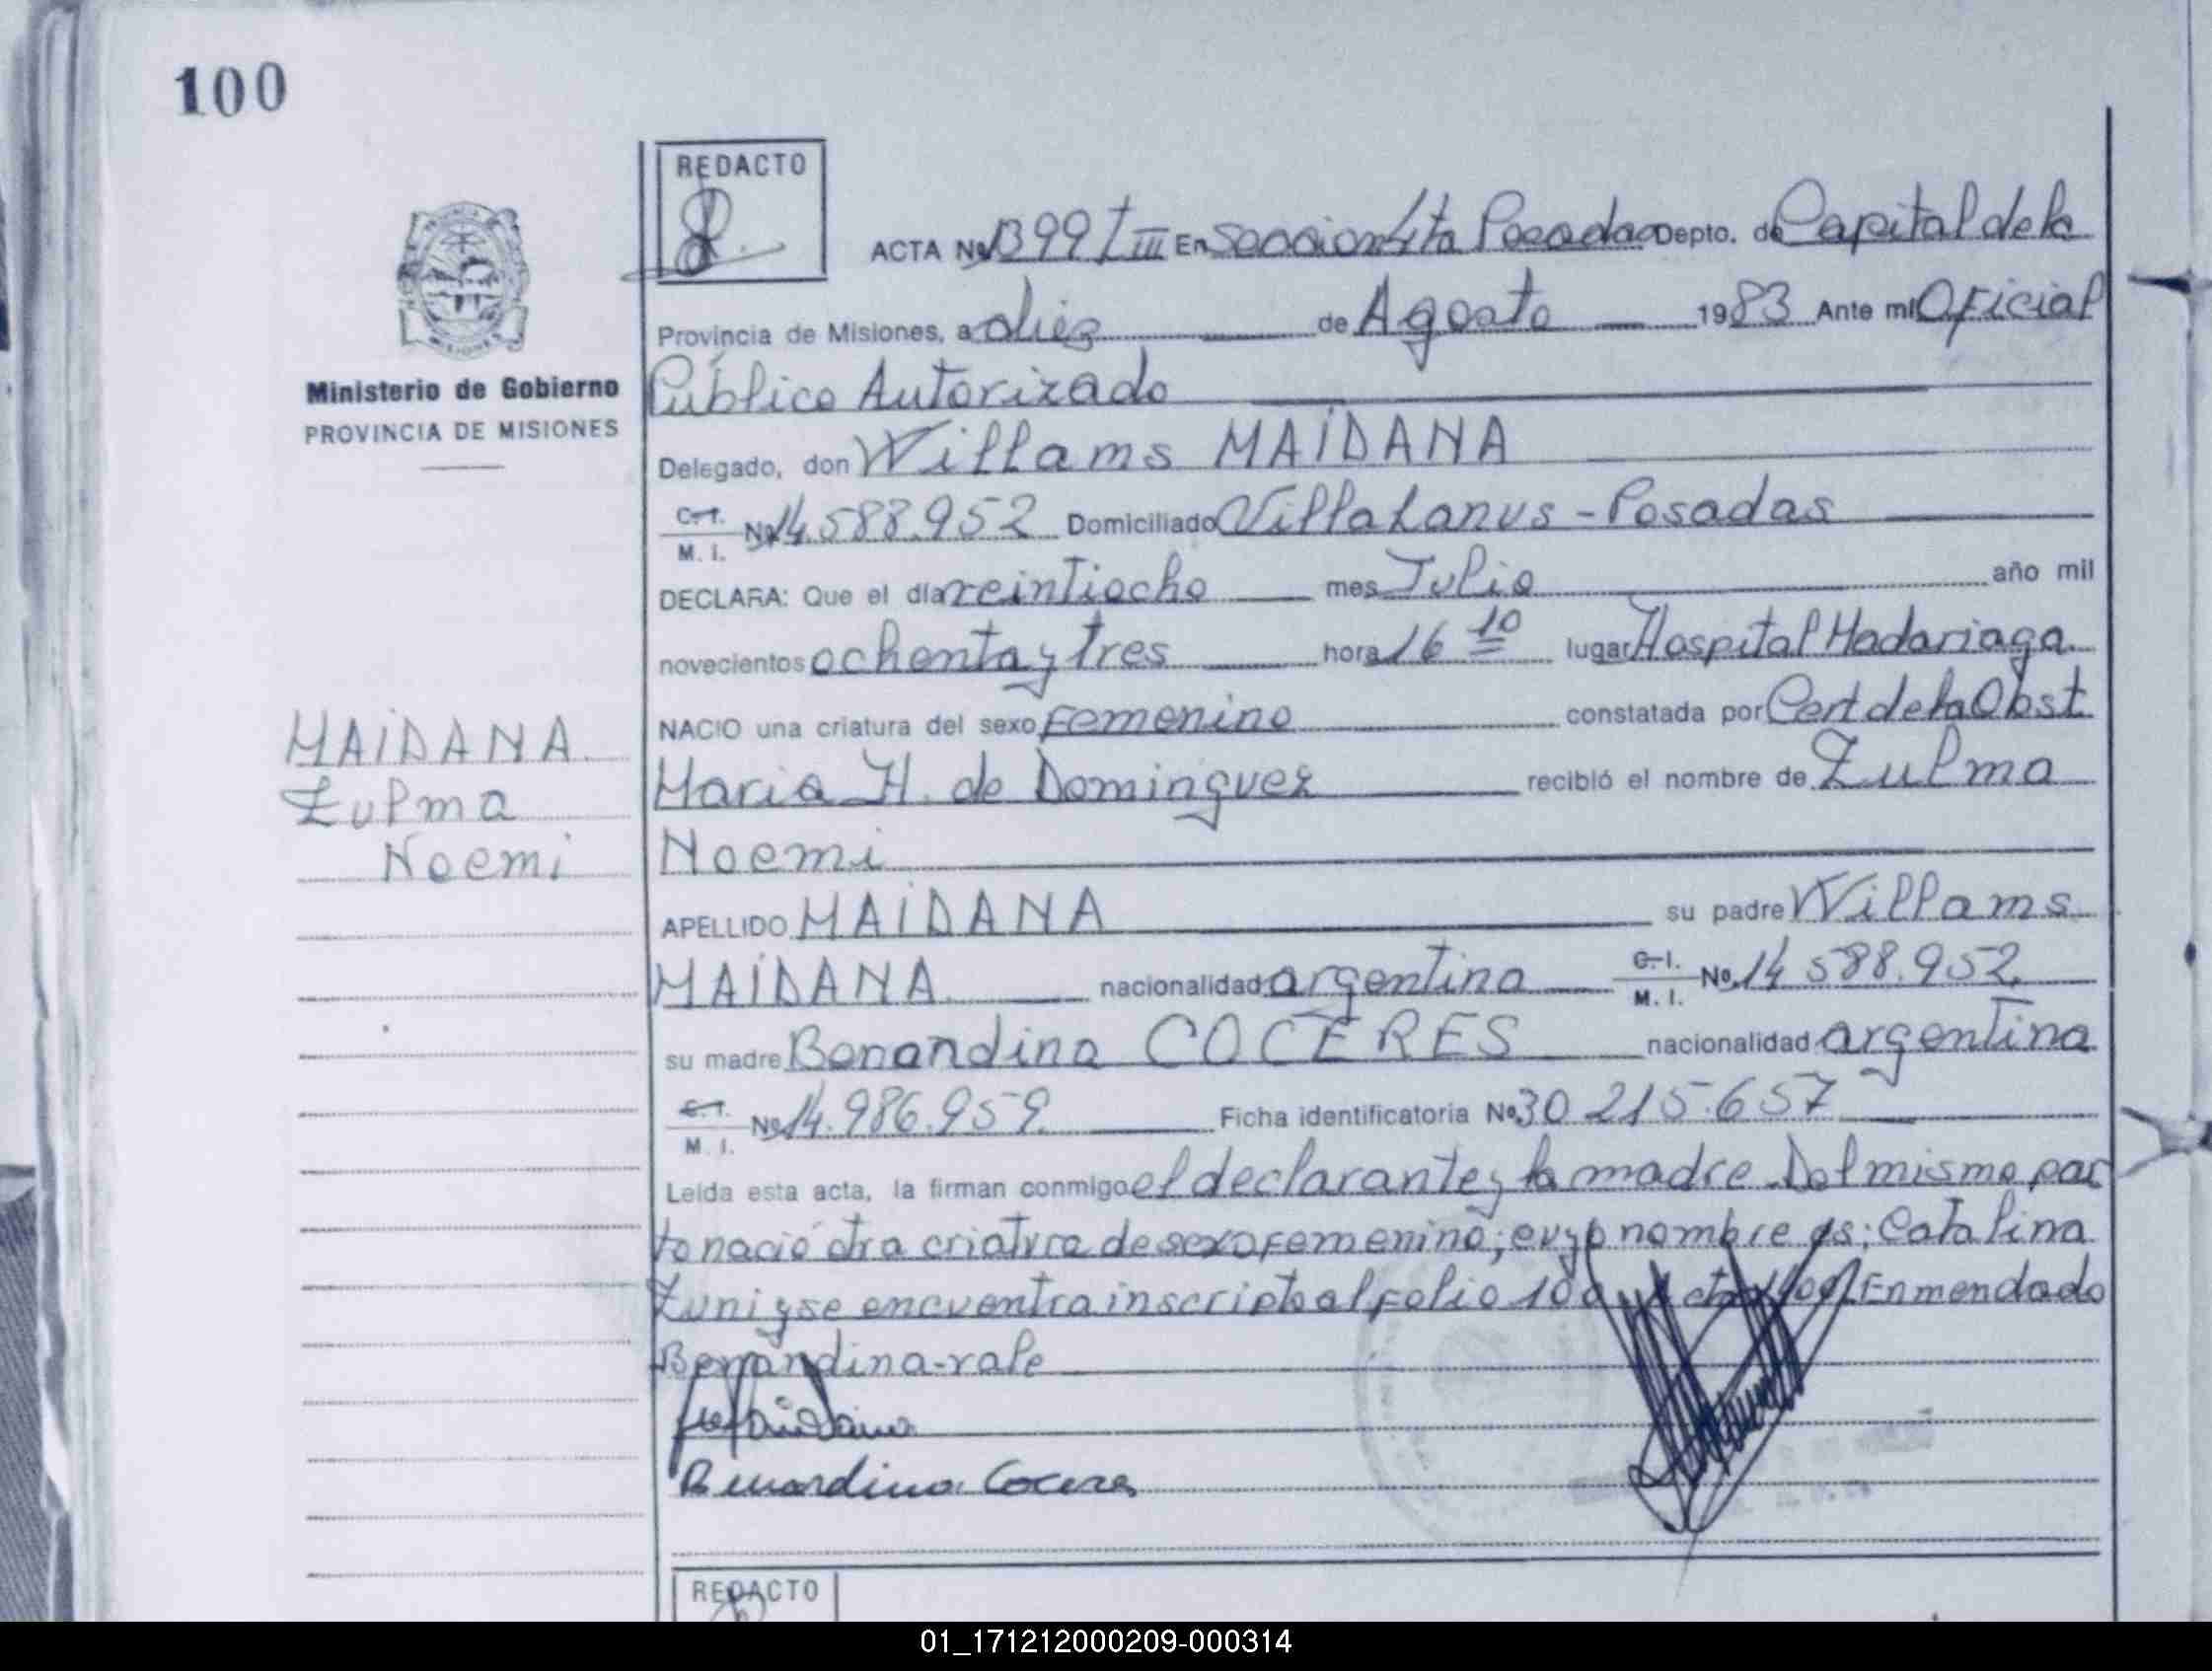 100
REDACTO
ACTA Nº 1399 T III En Seccion 4ta Posadas Depto. de Capital de la
Provincia de Misiones, a diez de Agosto 1983 Ante mi Oficial
Ministerio de Gobierno
PROVINCIA DE MISIONES
Público Autorizado
Delegado, don Willams MAIDANA
C.I. M. I. Nº 14.588.952 Domiciliado Villa Lanus - Posadas
DECLARA: Que el día veintiocho mes Julio año mil
novecientos ochenta y tres hora 16 10 lugar Hospital Madariaga
NACIO una criatura del sexo Femenino constatada por Cert de la Obst
MAIDANA
Zulma
Noemi
Maria H. de Dominguez recibió el nombre de Zulma
Noemi
APELLIDO MAIDANA su padre Willams
MAIDANA nacionalidad argentina C.I. M. I. Nº 14.588.952
su madre Benandina COCERES nacionalidad argentina
C.I. M. I. Nº 14.986.959 Ficha identificatoria Nº 30.215.657
Leída esta acta, la firman conmigo el declarante y la madre. Del mismo par
to nació otra criatura de sexo Femenino; cuyo nombre es: Catalina
Zuni y se encuentra inscripto al folio 100, Enmendado
Benandina-vale
Benardina Coceres
REDACTO
01_171212000209-000314